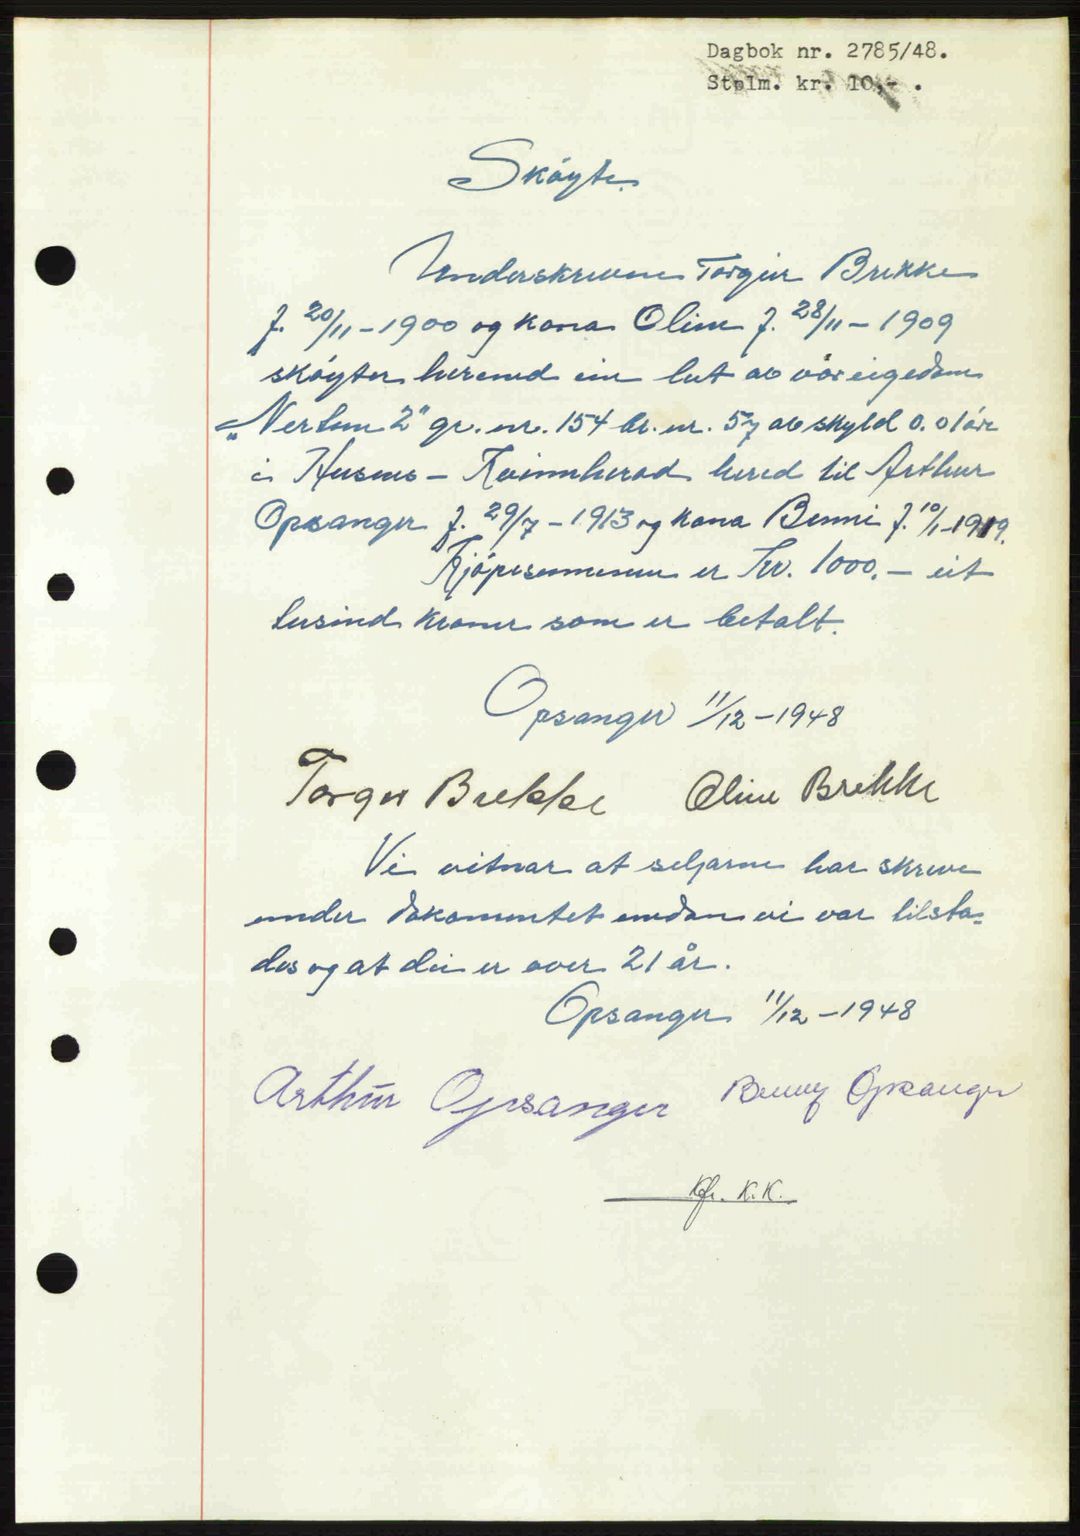 Dagbok nr. 2785/48.
Stplm. kr. 10,- .
Skøyte.
Underskrevne Torgeir Brekke
f. 20/11 - 1900 og kona Oline f. 28/11 - 1909
skøyter hermed ein lut av vår eigedom
"Nertun 2" gr. nr. 154 br. nr. 57 av skyld 0.01 øre
i Husnes - Kvinnherad hered til Arthur
Opsanger f. 29/7 - 1913 og kona Benni f. 10/1-1919.
Kjøpesummen er Kr. 1000.- eit
tusind kroner som er betalt.
Opsanger 11/12 - 1948
Torger Brekke Oline Brekke
Vi vitnar at seljarne har skreve
under dokumentet medan vi var tilsta-
des og at dei er over 21 år.
Opsanger 11/12 - 1948
Arthur Opsanger Benny Opsanger
Kfr. K.K.